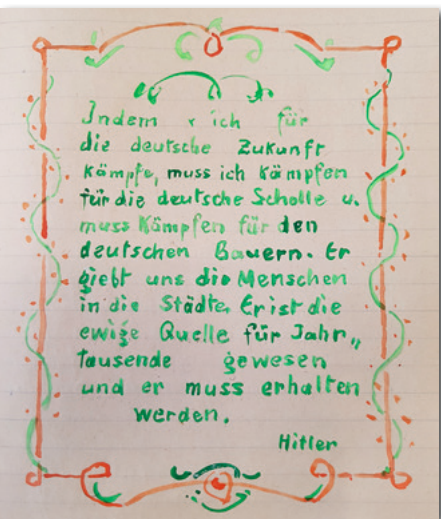 Indem ich für
die deutsche Zukunft
Kämpfe, muss ich Kämpfen
für die deutsche Scholle u.
muss Kämpfen für den
deutschen Bauern. Er
giebt uns die Menschen
in die Städte, Er ist die
ewige Quelle für Jahr„
tausende gewesen
und er muss erhalten
werden.
Hitler